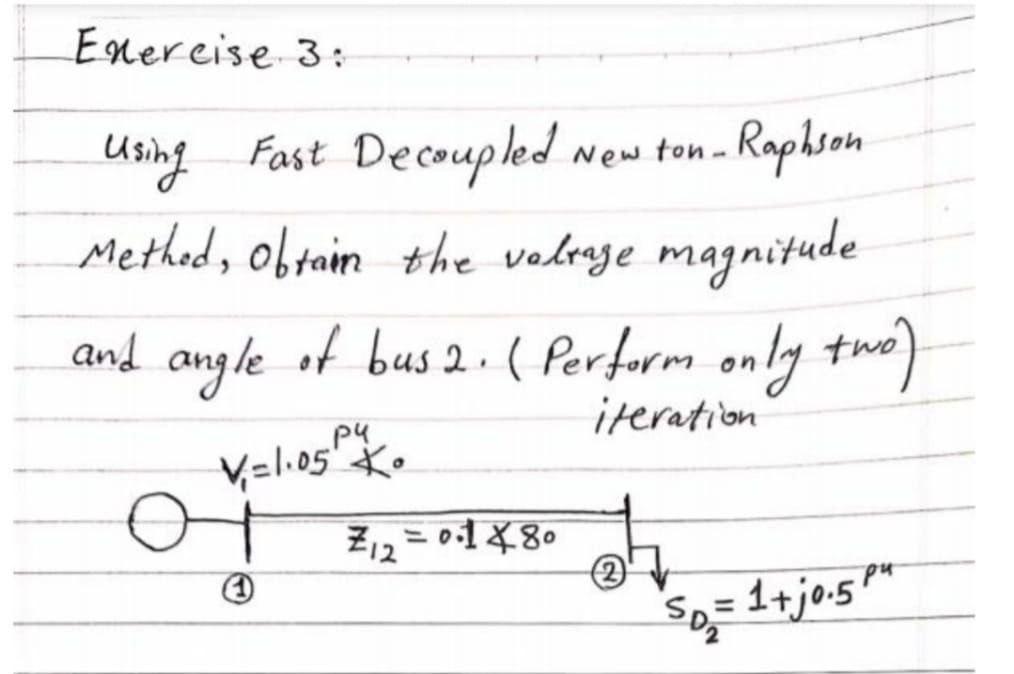 Exercise 3:
Using Fast Decoupled Newton-Raphson
Method, Obtain the voltage magnitude
and angle of bus 2. (Perform only two)
iteration
V₁=1.05 pu ∡0
Z₁₂ = 0.1 ∡80
① ②
S_D₂ = 1+j0.5 pu